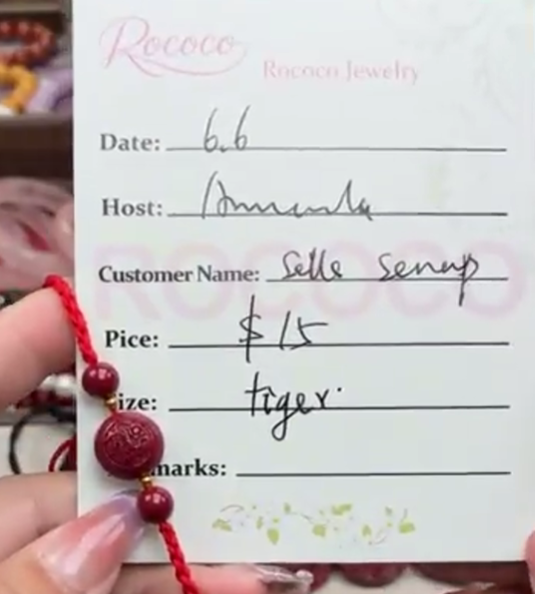 Rococo
Rococo Jewelry
Date: 6.6
Host:
ROCOCO
Customer Name: Selle
Pice: $15
ize: tiger.
marks: